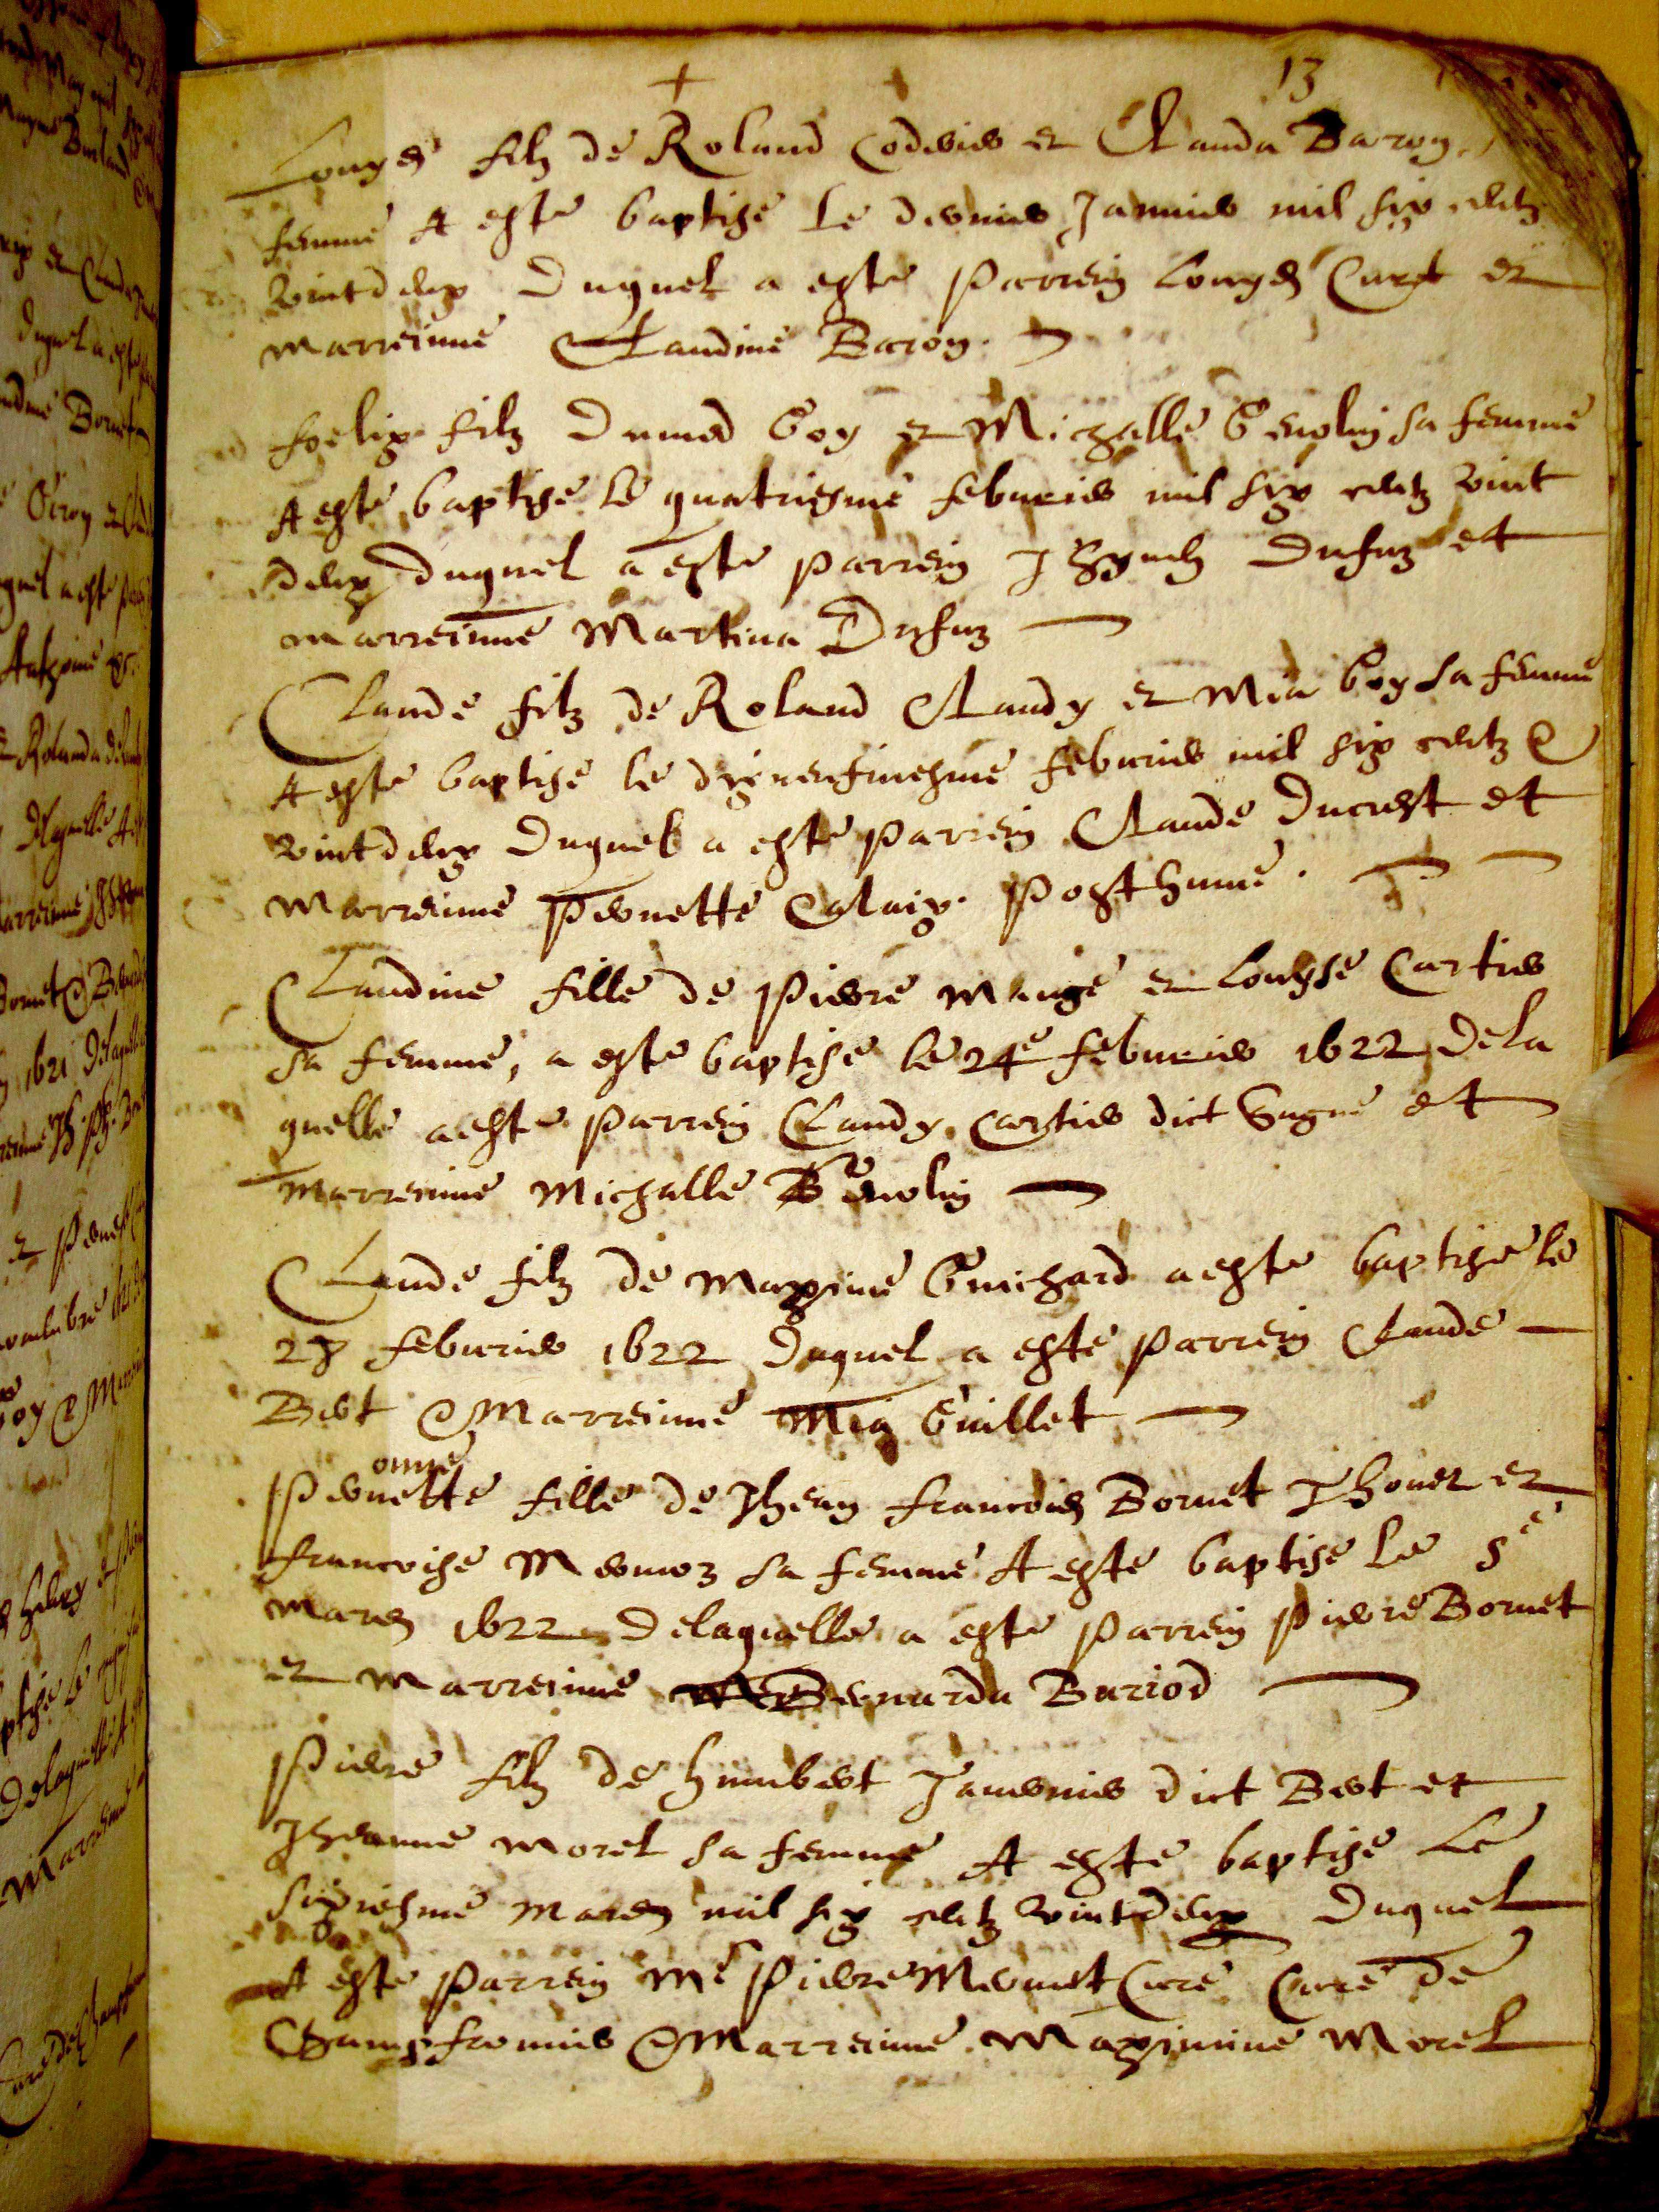 13
Louys filz de Roland Codurier et Clauda Baron
femme A este baptisé le dernier Januier mil six centz
vintdeux Duquel a este parrein Louys Curt et
marreinne Claudine Baron.
foelix filz Dumod Goy et Michalle Genolin sa femme
A este baptisé le quatriesme febvrier mil six centz vint
deux duquel a este parrein Dufuz et
marreinne Martina Dufuz
Claude filz de Roland Claudy et Mia Goy sa femme
A este baptisé le dixneufiuesme febvrier mil six centz &
vintdeux Duquel a este parrein Claude Ducrest et
marreinne Pernette posthume.
Claudine fille de Pierre Mange et Louyse Cartier
sa femme, a este baptisé le 24e febvrier 1622 Dela
quelle a este parrein Claudy Cartier dict et
marreinne Michalle Genolin
Claude filz de Maxime Guichard a este baptisé le
27 febvrier 1622 Duquel a este parrein Claude
Bert & Marreinne Mia Guillet
onne
Pernette fille de Jhean francois Bornet et
francoise Mermoz sa femme A este baptisé le 5e
mars 1622 Delaquelle a este parrein Pierre Bornet
et marreinne Bernarda Buriod
Pierre filz de humbert Jannernier dict Bert et
Jheanne Morel sa femme A este baptisé le
sixiesme mars mil six centz vintdeux Duquel
A este parrein Me Pierre Mermet Curé Curé de
Champfromier & Marreinne Maximine Morel